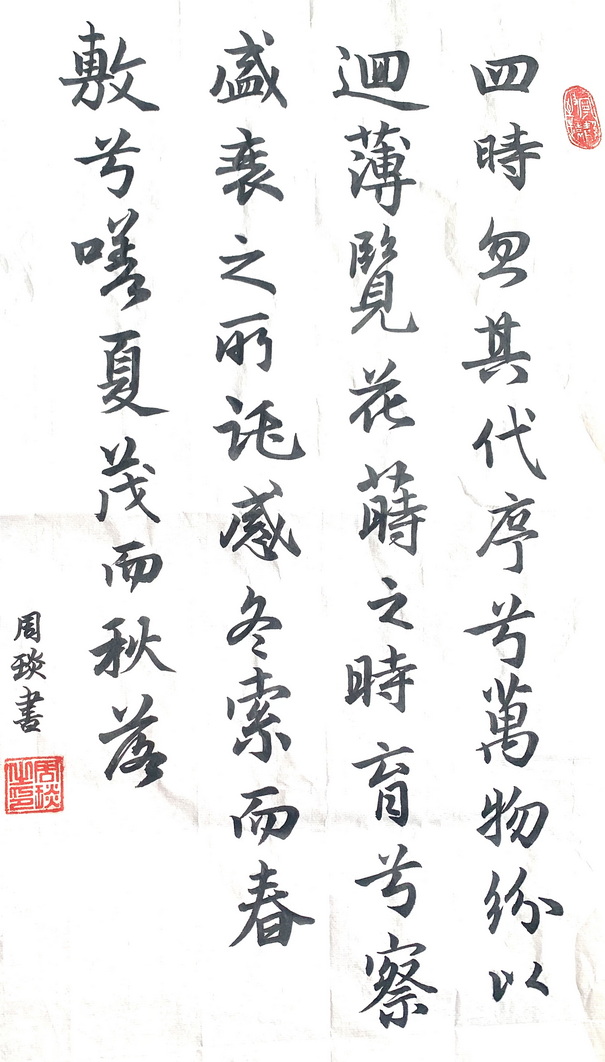 四時忽其代序兮萬物紛以
迴薄覽花蒔之時育兮察
盛衰之所託感冬索而春
敷兮嗟夏茂而秋落
周琰書
周琰之印